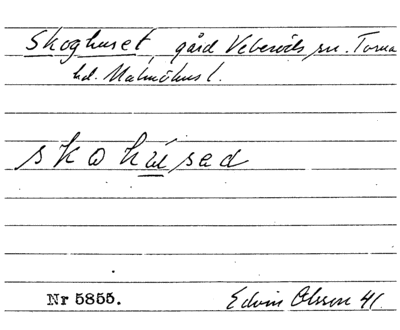 Skoghuset, gård Veberöds sn. Torna
hd. Malmöhus l.
skohúsəd
Nr 5855.
Edvin Olsson 41